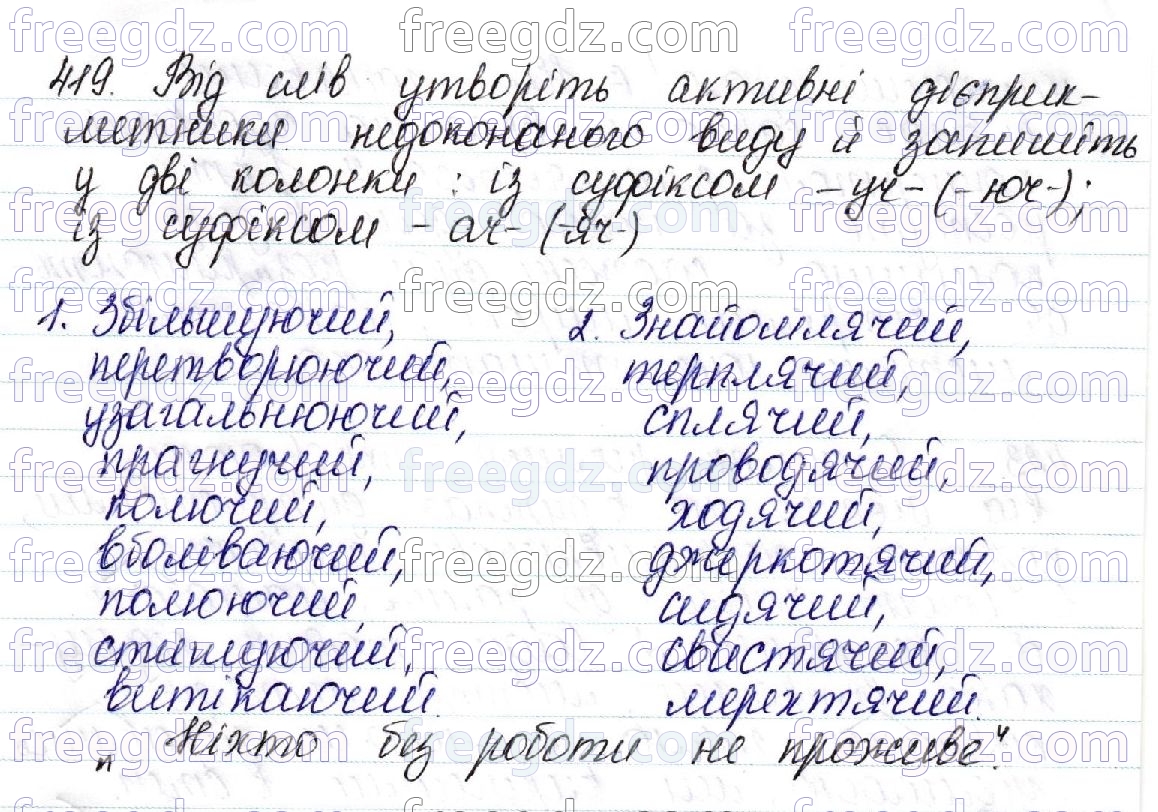 419. Від слів утворіть активні дієприк-
метники недоконаного виду й запишіть
у дві колонки : із суфіксом -уч- (-юч-);
із суфіксом - ач- (-яч-)
1. Збільшуючий,
перетворюючий,
узагальнюючий,
прагнучий,
колючий,
вболіваючий,
полюючий,
стишуючий,
витікаючий.
2. Знайомлячий,
терплячий,
сплячий,
проводячий,
ходячий,
джеркотячий,
сидячий,
свистячий,
мерехтячий.
„ Ніхто без роботи не проживе“.
freegdz.com